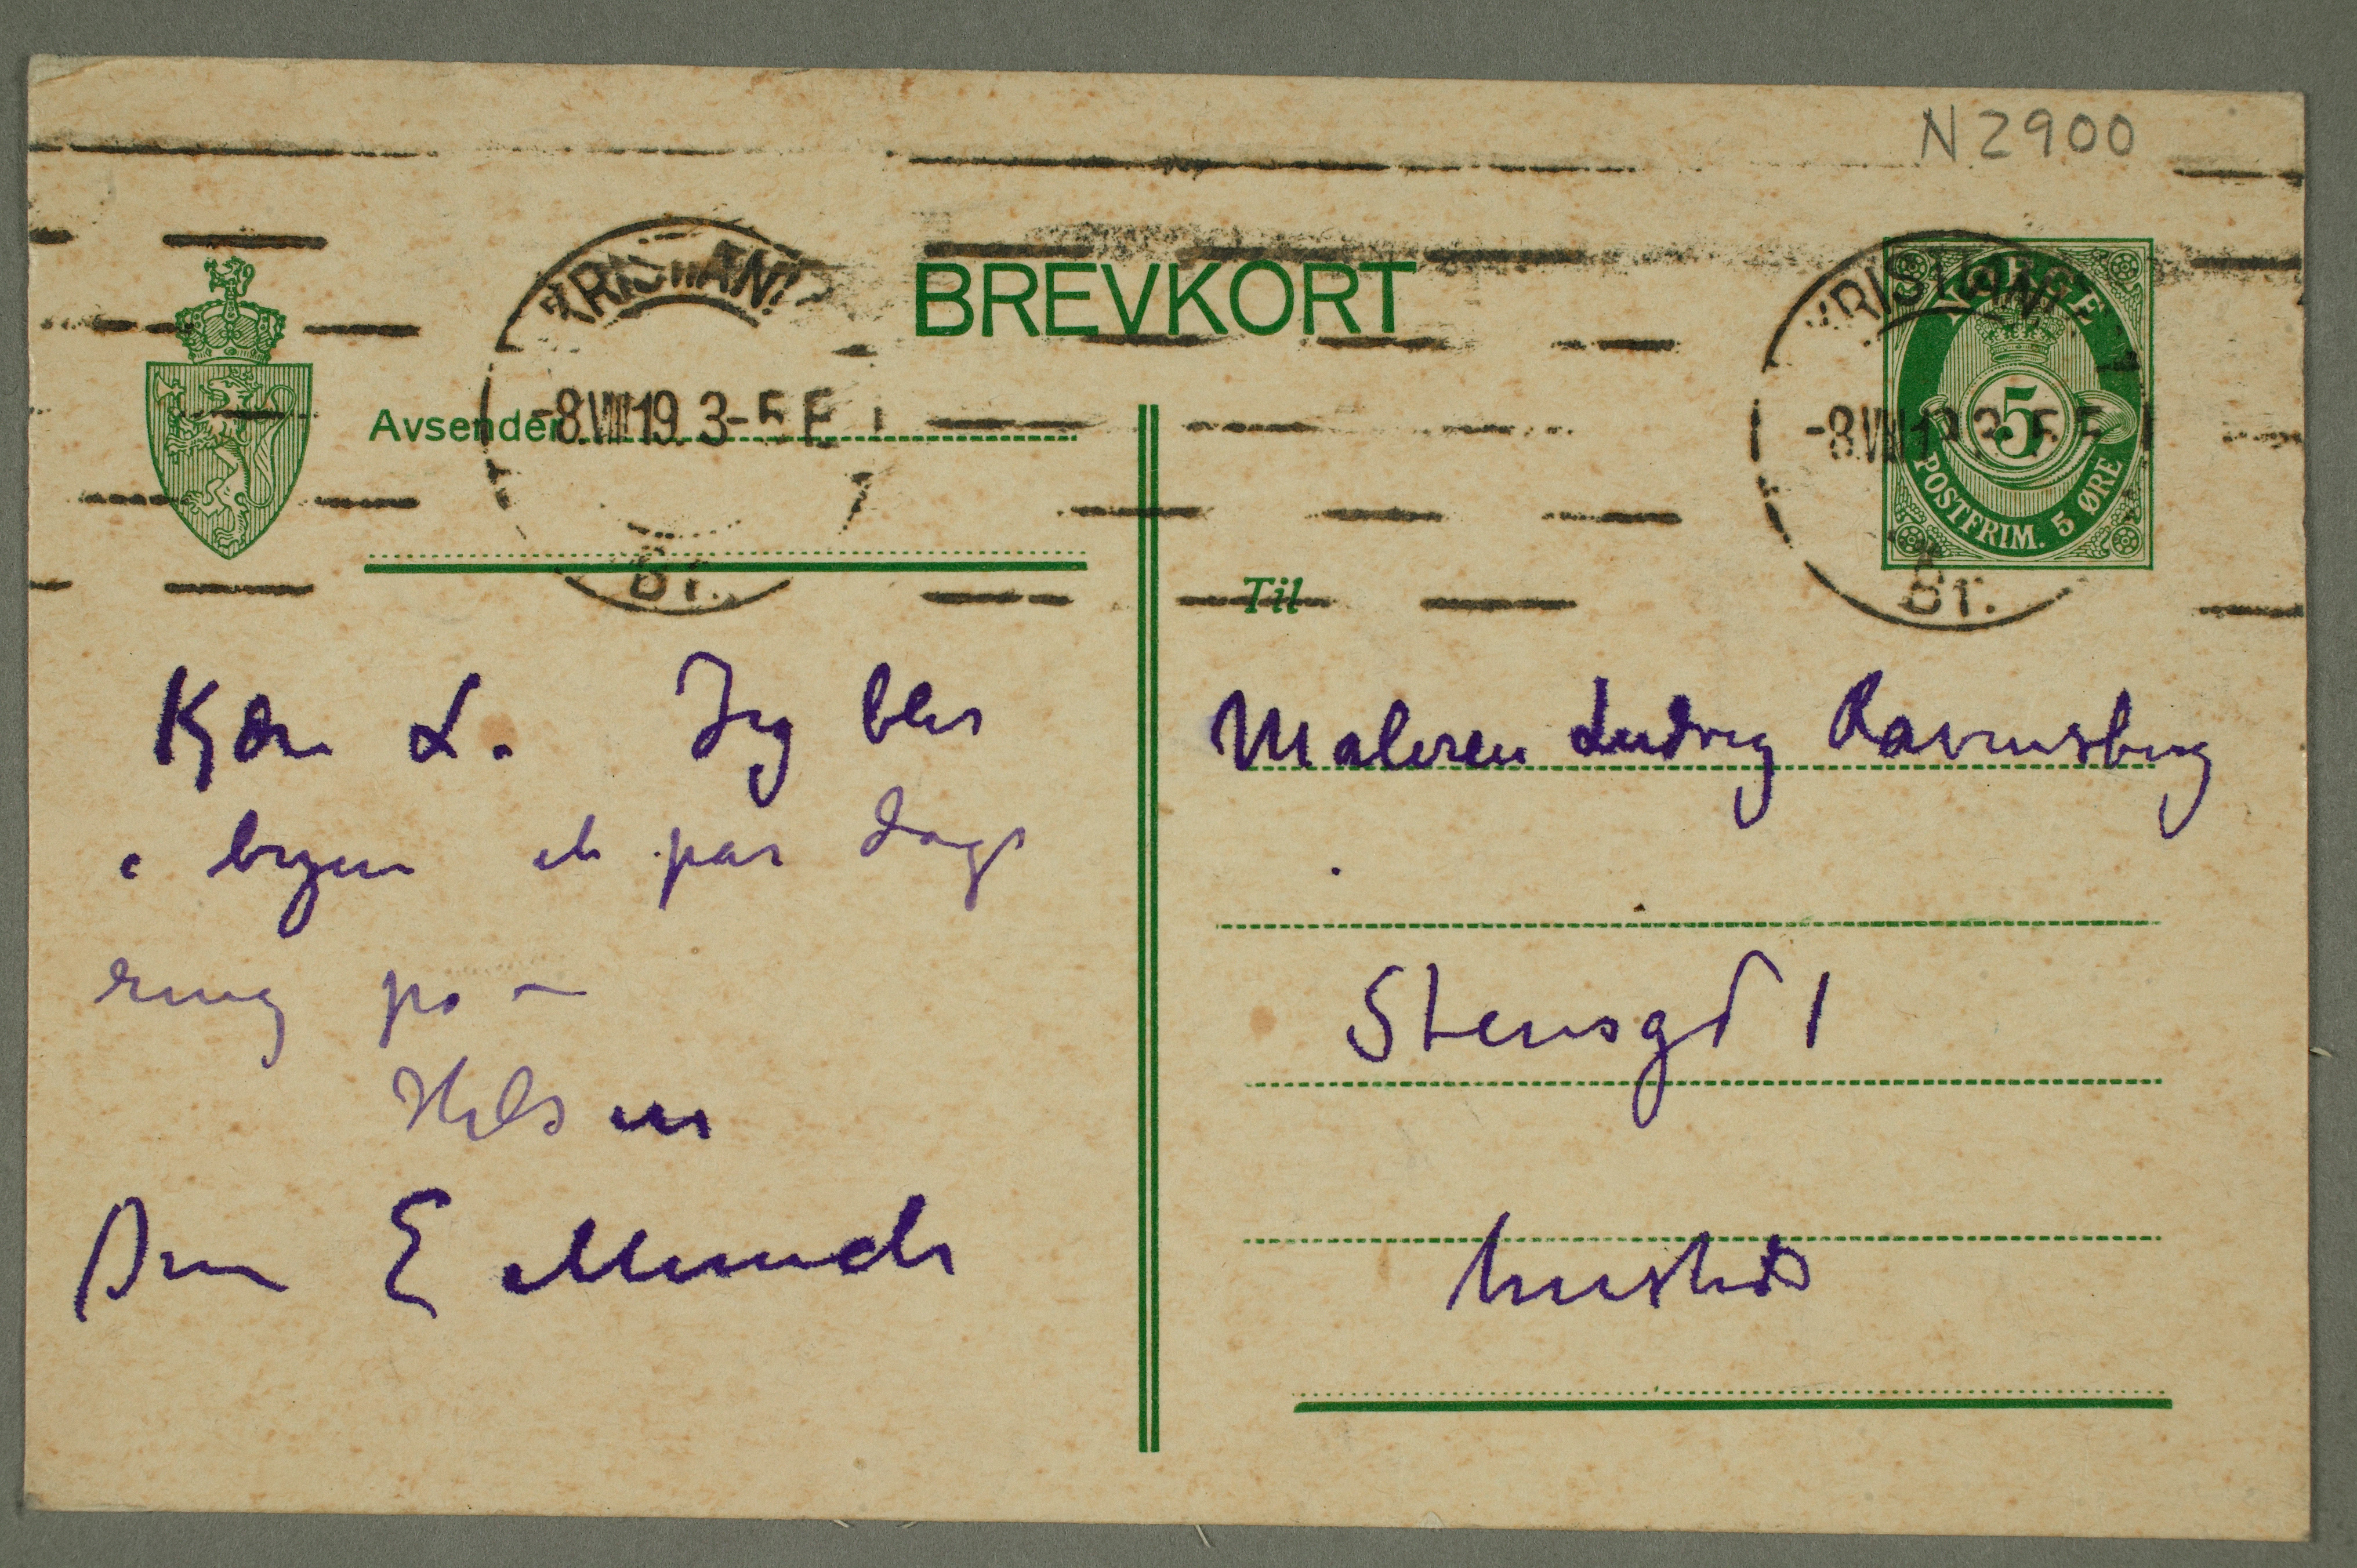 N2900
BREVKORT
KRISTIANIA
-8.VIII.19. 3-5 E
Br.
KRISTIANIA
-8.VIII.19. 3-5 E
Br.
NORGE
5
POSTFRIM. 5 ØRE
Avsender
Kjære L. Jeg blir
i byen et par dage
ring på –
Hilsen
Din E Munch
Til
Maleren Ludvig Ravensberg
Stensgd 1